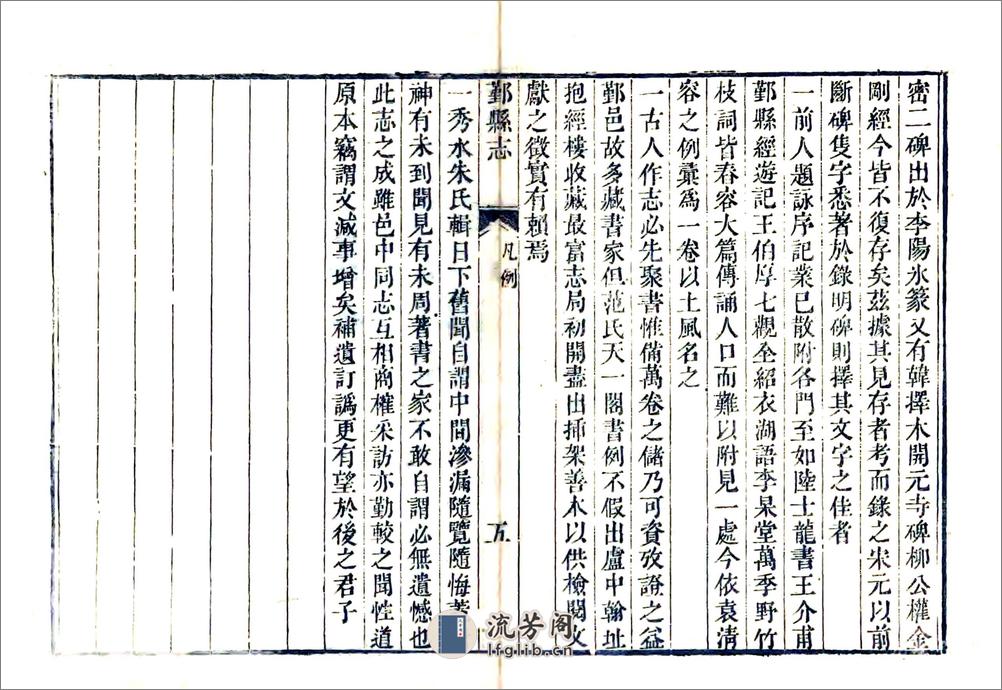 密二碑出於李陽氷篆又有韓擇木開元寺碑柳公權金
剛經今皆不復存矣茲據其見存者考而錄之宋元以前
斷碑隻字悉著於錄明碑則擇其文字之佳者
一前人題詠序記業已散附各門至如陸士龍書王介甫
鄞縣經遊記王伯厚七觀全紹衣湖語李杲堂萬季野竹
枝詞皆春容大篇傳誦人口而難以附見一處今依袁淸
容之例彙爲一卷以土風名之
一古人作志必先聚書惟備萬卷之儲乃可資攷證之益
鄞邑故多藏書家但范氏天一閣書例不假出盧中翰址
抱經樓收藏最富志局初開盡出揷架善本以供檢閱文
獻之徵實有賴焉
鄞縣志
凡例
五
一秀水朱氏輯日下舊聞自謂中間滲漏隨覽隨悔
神有未到聞見有未周著書之家不敢自謂必無遺憾也
此志之成雖邑中同志互相商榷采訪亦勤較之聞性道
原本竊謂文減事增矣補遺訂譌更有望於後之君子
流芳阁
lfglib.cn